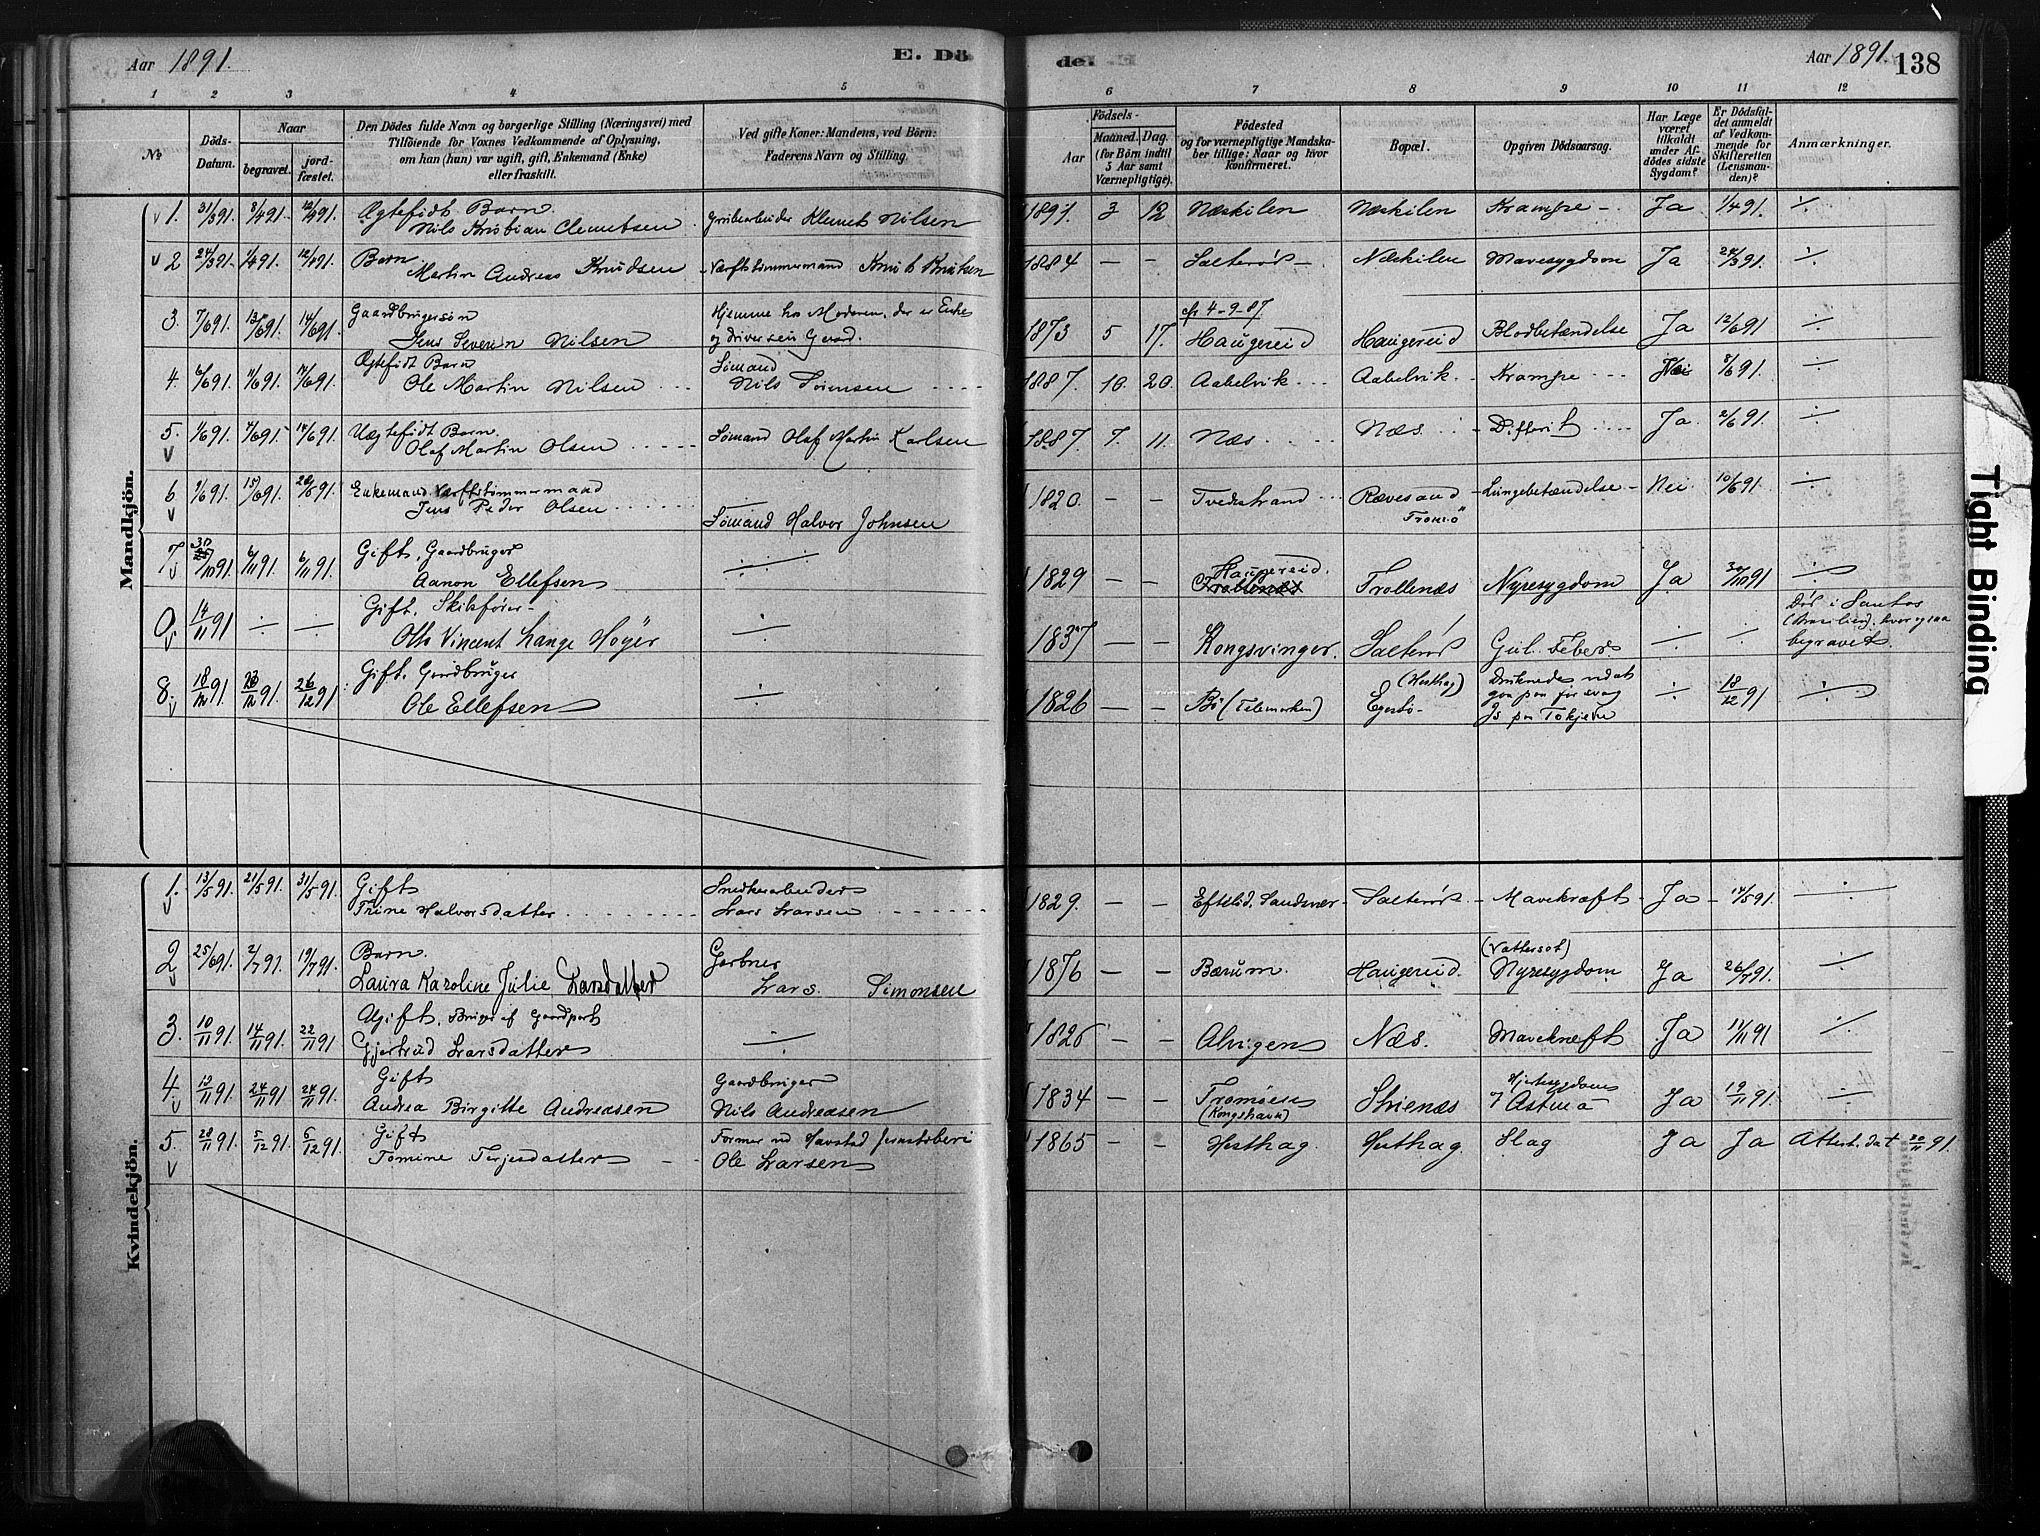 Aar 1891.
E. Dö
de.
Aar 1891.
138
1 2 3 4 5 6 7 8 9 10 11 12
No
Döds-Datum.
Naar
begravet.
jord-fæstet.
Den Dödes fulde Navn og borgerlige Stilling (Næringsvei) med
Tilföiende for Voxnes Vedkommende af Oplysning,
om han (hun) var ugift, gift, Enkemand (Enke)
eller fraskilt.
Ved gifte Koner: Mandens, ved Börn:
Faderens Navn og Stilling.
Födsels-
Aar
Maaned. Dag.
(for Börn indtil
5 Aar samt
Værnepligtige).
Födested
og for værnepligtige Mandska-
ber tillige: Naar og hvor
konfirmeret.
Bopæl.
Opgiven Dödsaarsag.
Har Læge
været
tilkaldt
under Af-
dödes sidste
Sygdom?
Er Dödsfal-
det anmeldt
af Vedkom-
mende for
Skifteretten
(Lensman-
den)?
Anmærkninger.
Mandkjön.
1. 31/3 91. 8/4 91. 12/4 91. Ægtefödt Barn. Nils Kristian Clemetsen Grubearbeider Klemet Nilsen 1891 3 12 Næskilen Næskilen Krampe Ja 1/4 91. ÷
2 24/3 91. 1/4 91. 12/4 91. Barn. Martin Andreas Knudsen Værftstømmermand Knut Knutsen 1884 — — Salterød Næskilen Mavesygdom Ja 24/3 91. ÷
3. 7/6 91. 13/6 91. 14/6 91. Gaardbrugersøn Jens Severin Nilsen Hjemme hos Moderen, der er Enke og driver sin Gaard. 1873 5 17. cfr 4-9-87. Haugereid Haugereid Blodbetændelse Ja 12/6 91 ÷
4. 6/6 91. 11/6 91. 14/6 91. Ægtefødt Barn Ole Martin Nilsen Sømand Nils Sørensen 1887. 10. 20. Aabelvik Aabelvik Krampe Nei 8/6 91. ÷
5. 1/6 91. 4/6 91. 14/6 91. Uægtefødt Barn. Olaf Martin Olsen Sømand Olaf Martin Karlsen 1887. 7. 11. Næs Næs Difterit Ja 2/6 91. ÷
6 9/6 91. 15/6 91. 28/6 91. Enkemand. Værftstømmermand Jens Peder Olsen — Sømand Halvor Johnsen 1820. — — Tvedestrand Rævesand Tromø Lungebetændelse Nei 10/6 91. ÷
7 30/10 91. 6/11 91. 6/11 91. Gift, Gaardbruger Aanon Ellefsen ÷ 1829 — — Haugereid. Trollenæs Trollenæs Nyresygdom Ja 30/10 91 ÷
0 14/11 91 ÷ — Gift, Skibsfører Otto Vincent Lange Høyer ÷ 1837 — Kongsvinger. Salterød Gul. Feber ÷ ÷ Død i Santos (Brasilien), hvor ogsaa begravet.
8. 18/12 91 23/12 91. 26/12 91. Gift, Gaardbruger Ole Ellefsen ÷ 1826 — — Bø (Telemarken) (Hesthag) Egesbø Druknede ved at gaa paa for svag Is paa Tokjern ÷ 18/12 91 ÷
Kvindekjön.
1. 13/5 91. 21/5 91. 31/5 91. Gift Trine Halvorsdatter Snedkerarbeider Lars Larsen 1829. — — Efteløt, Sandsvær Salterød Mavekræft Ja 14/5 91. ÷
2 25/6 91. 2/7 91. 19/7 91. Barn. Laura Karoline Julie Larsdatter Gartner Lars Simonsen 1876 — — Bærum. Haugereid. (Vattersot) Nyresygdom Ja 26/7 91. ÷
3. 10/11 91. 14/11 91. 22/11 91 Ugift, Bruger af Gaardpart Gjertrud Larsdatter ÷ 1826 — — Alvigen Næs. Mavekræft Ja 12/11 91 ÷
4. 13/11 91. 24/11 91 24/11 91. Gift Andrea Birgitte Andreasen Gaardbruger Nils Andreasen 1834 — — Tromøen (Kongshavn) Strienæs Hjertesygdom Astma Ja 19/11 91. ÷
5 28/11 91. 5/12 91. 6/12 91. Gift Tomine Terjesdatter Former ved Havstad Jernstøberi Ole Larsen 1865 — Hesthag Hesthag. Slag Ja Ja Attest. dat 30/11 91.
Tight Binding